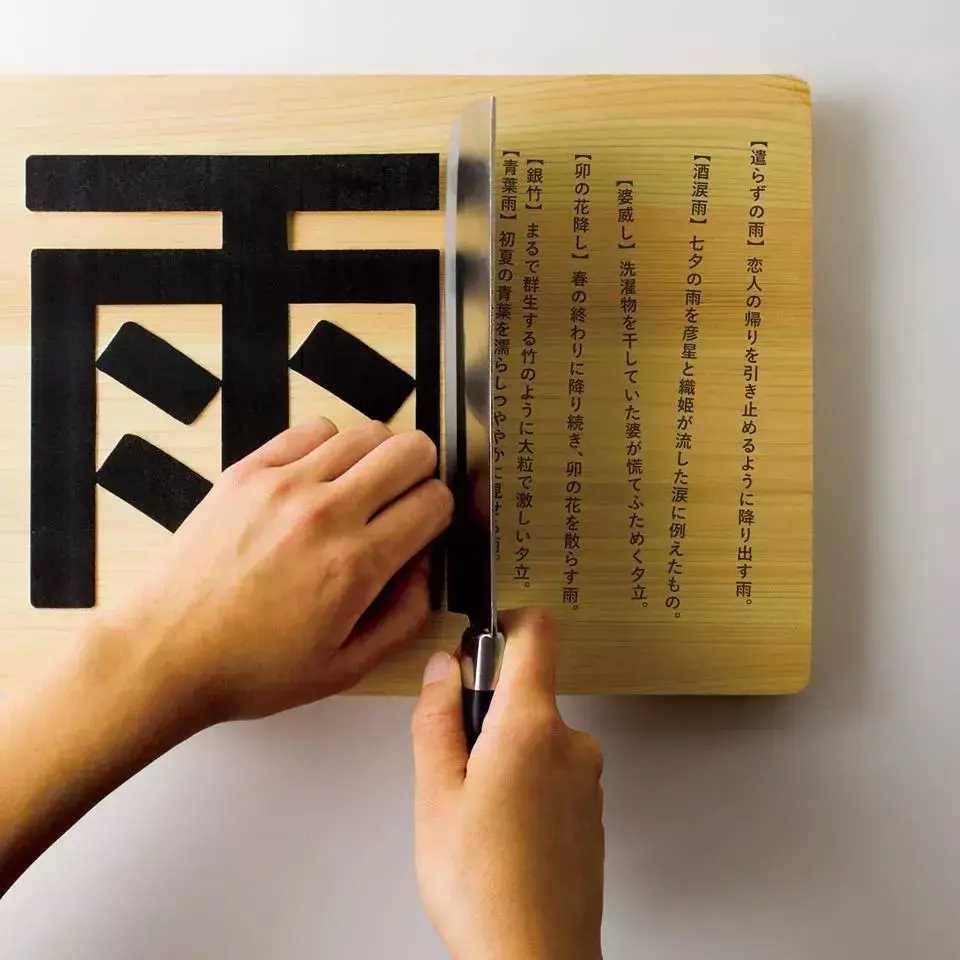 【遣らずの雨】恋人の帰りを引き止めるように降り出す雨。
【酒涙雨】七夕の雨を彦星と織姫が流した涙に例えたもの。
【婆威し】洗濯物を干していた婆が慌てふためく夕立。
【卯の花降し】春の終わりに降り続き、卯の花を散らす雨。
【銀竹】まるで群生する竹のように大粒で激しい夕立。
【青葉雨】初夏の青葉を濡らしつややかに
雨